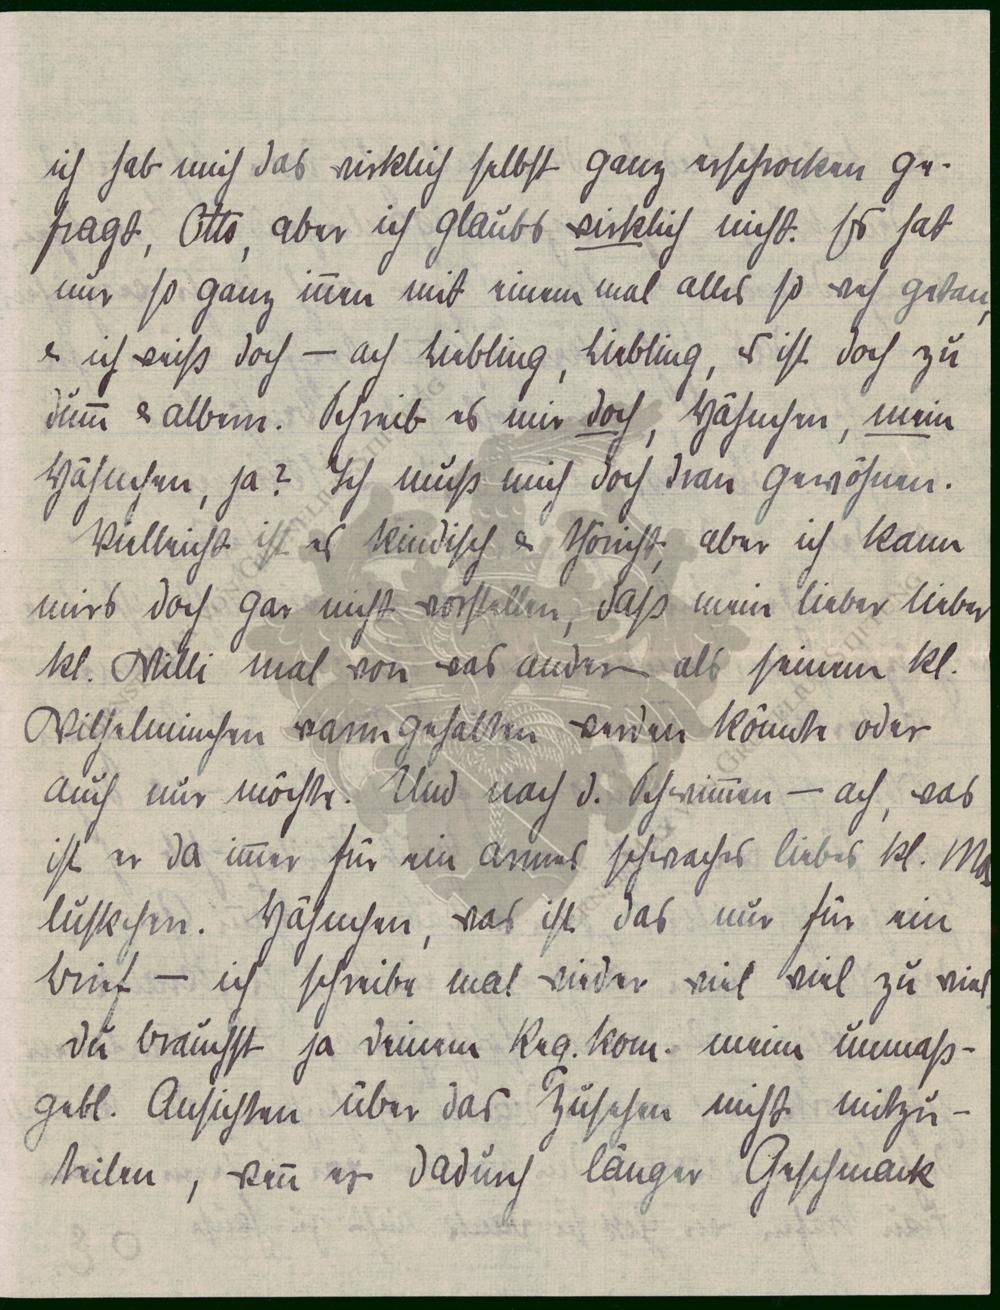 ich hab mich das wirklich selbst ganz erschrocken ge-
fragt, Otto, aber ich glaubs wirklich nicht. Es hat
nur so ganz innen mit einem mal alles so weh getan,
& ich weiß doch — ach Liebling, Liebling, es ist doch zu
dumm & albern. Schreib es mir doch, Hähnchen, mein
Hähnchen, ja? Ich muß mich doch dran gewöhnen.
Vielleicht ist es kindisch & thöricht, aber ich kann
mirs doch gar nicht vorstellen, daß mein lieber lieber
kl. Willi mal von was anderm als seinem kl.
Wilhelminchen warmgehalten werden könnte oder
auch nur möchte. Und nach d. Schwimmen — ach, was
ist er da immer für ein armes schwaches liebes kl. Mol
luskchen. Hähnchen, was ist das nur für ein
Brief — ich schreibe mal wieder viel viel zu viel
du brauchst ja deinem Reg. kom. meine unmaß-
gebl. Ansichten über das Zusehen nicht mitzu-
teilen, wenn er dadurch länger Geschmack